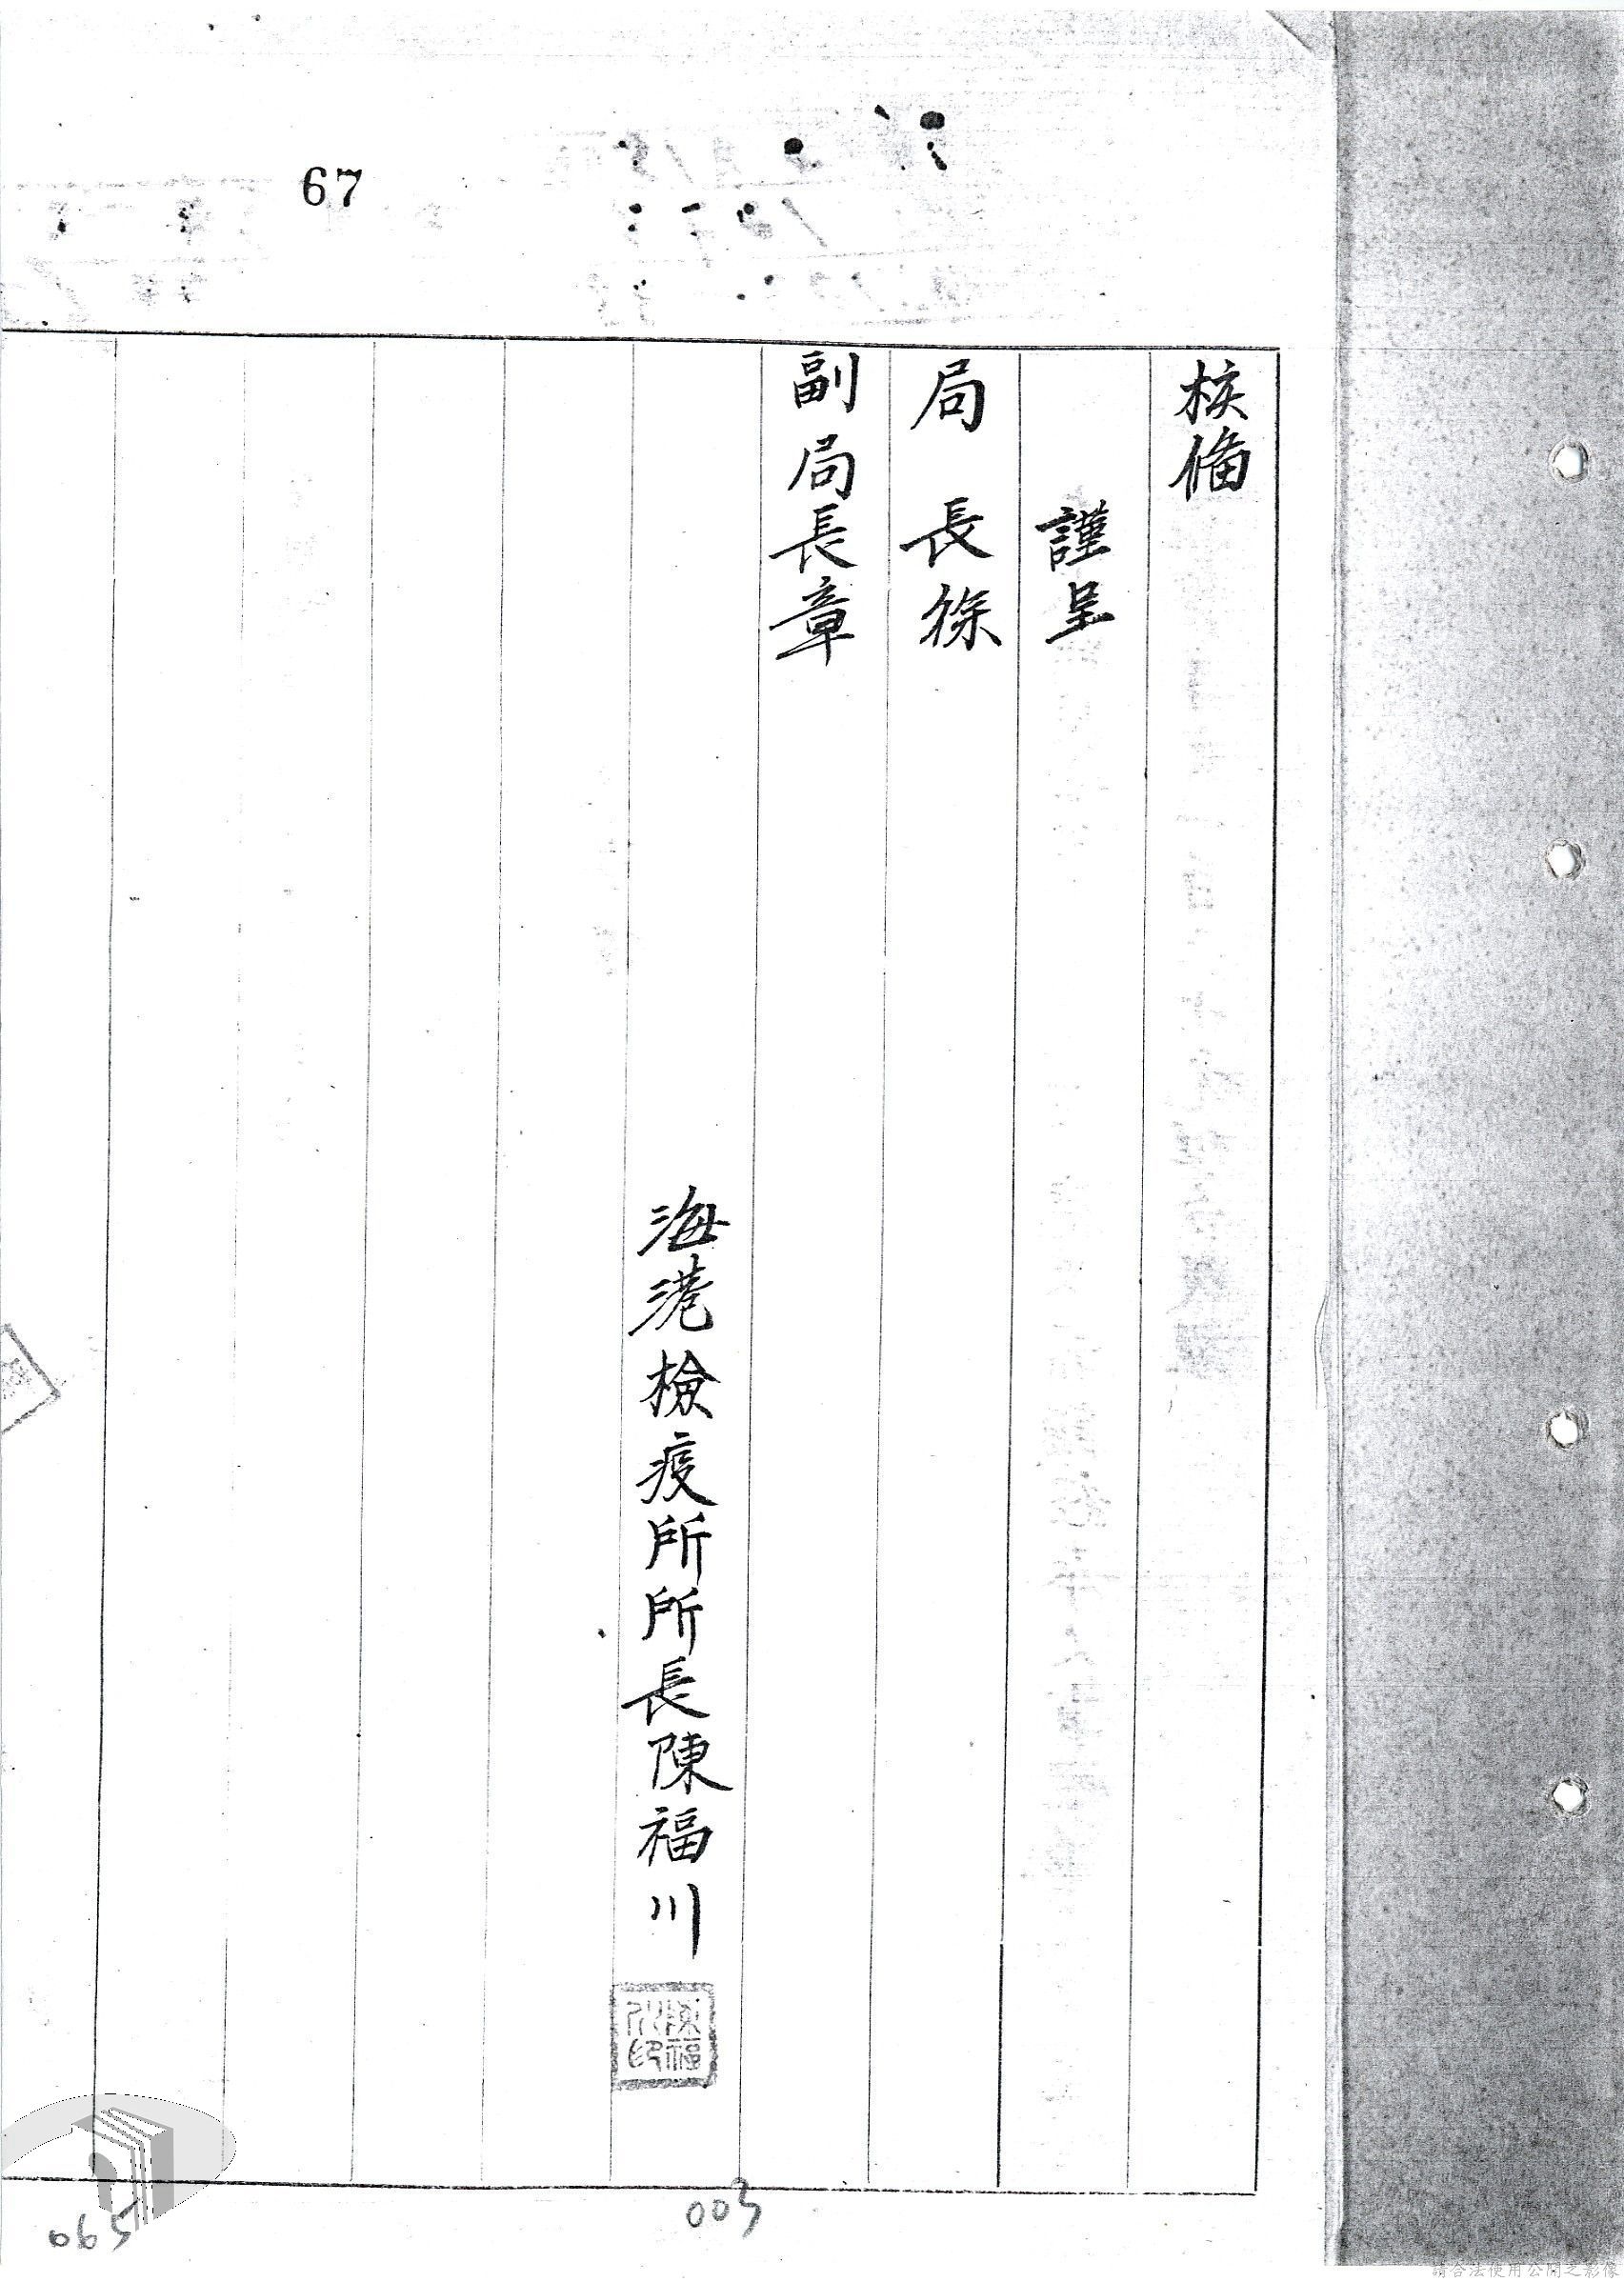 67
核備
謹呈
局長徐
副局長章
海港檢疫所所長陳福川
陳福川印
003
065
請合法使用公開之影像